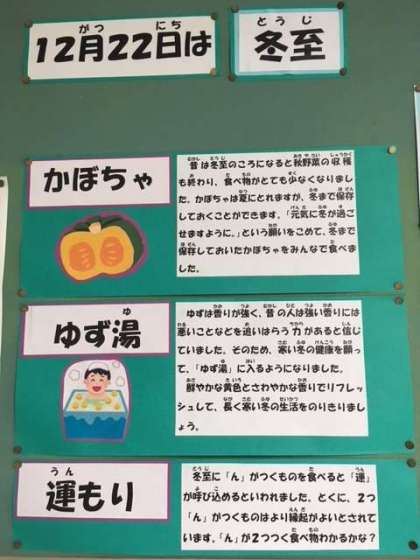 12月22日は
冬至
かぼちゃ
昔は冬至のころになると秋野菜の収穫
も終わり、食べ物がとても少なくなりまし
た。かぼちゃは夏にとれますが、冬まで保存
しておくことができます。「元気に冬が過ご
せますように。」という願いをこめて、冬まで
保存しておいたかぼちゃをみんなで食べま
した。
ゆず湯
ゆずは香りが強く、昔の人は強い香りには
悪いことなどを追いはらう力があると信じ
ていました。そのため、寒い冬の健康を願っ
て、「ゆず湯」に入るようになりました。
鮮やかな黄色とさわやかな香りでリフレッ
シュして、長く寒い冬の生活をのりきりまし
ょう。
運もり
冬至に「ん」がつくものを食べると「運」
が呼び込めるといわれました。とくに、2つ
「ん」がつくものはより縁起がよいとされて
います。「ん」が2つつく食べ物わかるかな？